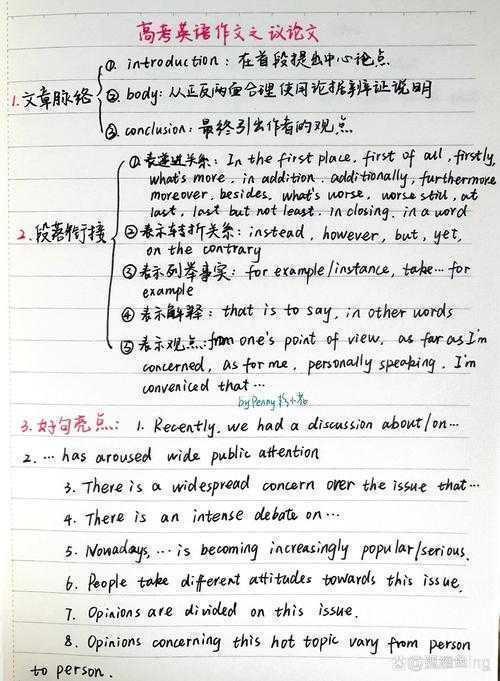 高考英语作文之议论文
1.文章脉络
① introduction: 在首段提出中心论点
② body: 从正反两面合理使用论据辨证说明
③ conclusion: 最终引出作者的观点
2.段落衔接
①表递进关系: In the first place, first of all, firstly,
what's more, in addition, additionally, furthermore
moreover, besides, what's worse, worse still, at
last, last but not least, in closing, in a word
②表示转折关系: instead, however, but, yet,
on the contrary
③表示列举事实: for example/instance, take… for
example
④表示解释: that is to say, in other words
⑤表示观点: from one's point of view, as far as I'm
concerned, as for me, personally speaking, I'm
conveniced that …
by Penny
3.好句亮点: 1. Recently, we had a discussion about/on…
2. … has aroused wide public attention
3. There is a widespread concern over the issue that…
4. There is an intense debate on…
5. Nowadays, … is becoming increasingly popular/serious.
6. People take different attitudes towards this issue.
7. Opinions are divided on this issue.
8. Opinions concerning this hot topic vary from person
to person.